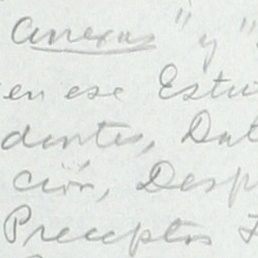 anexas" y "
en ese Estu
dentes, Dal
ción, Desp
Preceptos